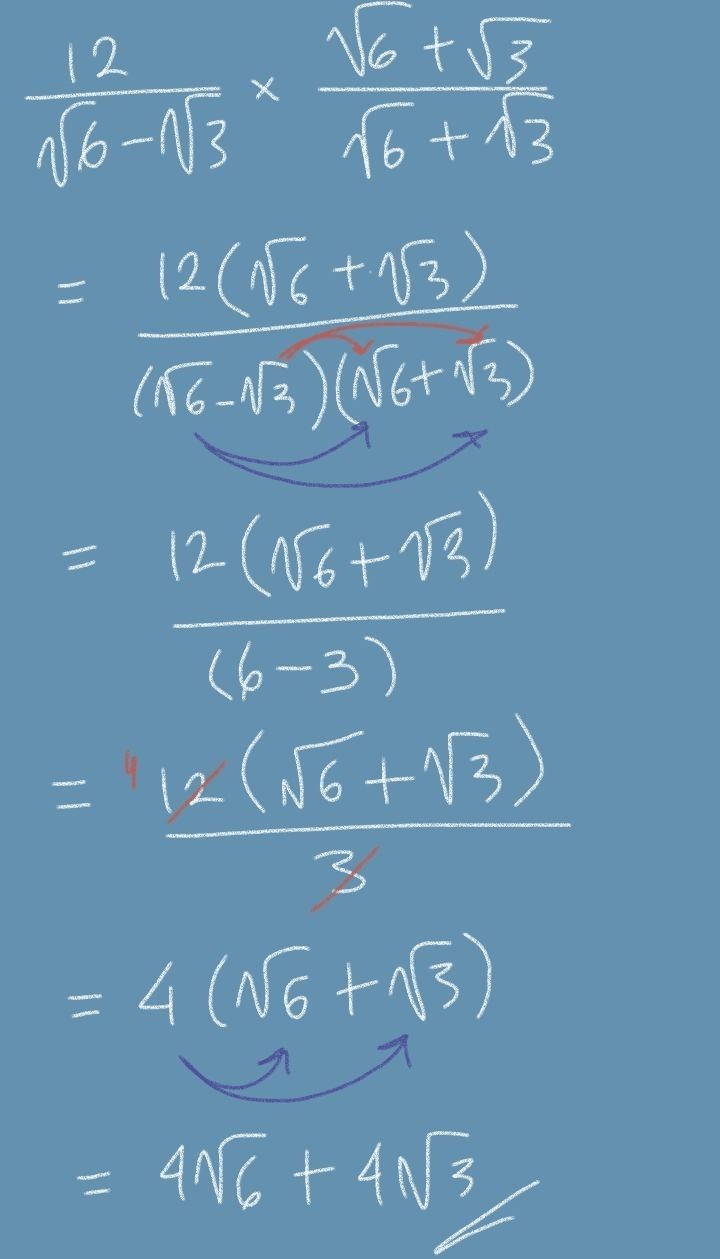 12/(√6-√3) × (√6+√3)/(√6+√3)
= 12(√6+√3)/((√6-√3)(√6+√3))
= 12(√6+√3)/(6-3)
= 4 12(√6+√3)/3
= 4(√6+√3)
= 4√6+4√3